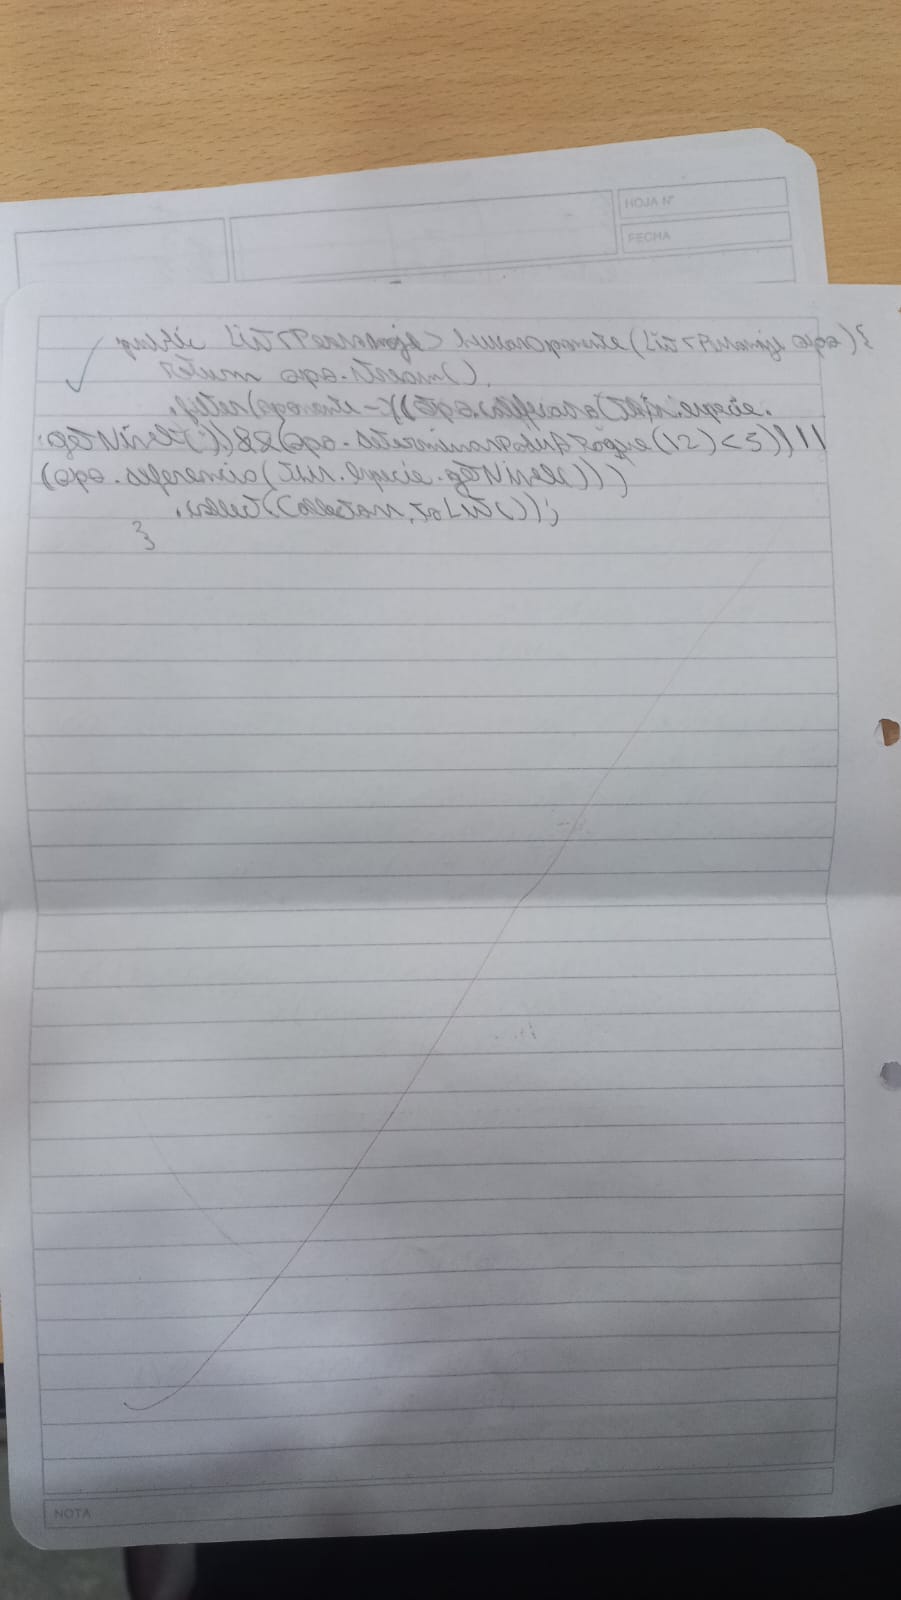 HOJA N°
FECHA
public List<Personaje> buscarOponente(List<Personaje> opo){
return opo.stream()
.filter(oponente -> ((opo. (this.especie.
getNivel()) && (opo.determinarPoderAtaque(12) < 5)) ||
(opo. (this.especie.getNivel()))
.collect(Collectors.toList());
}
NOTA